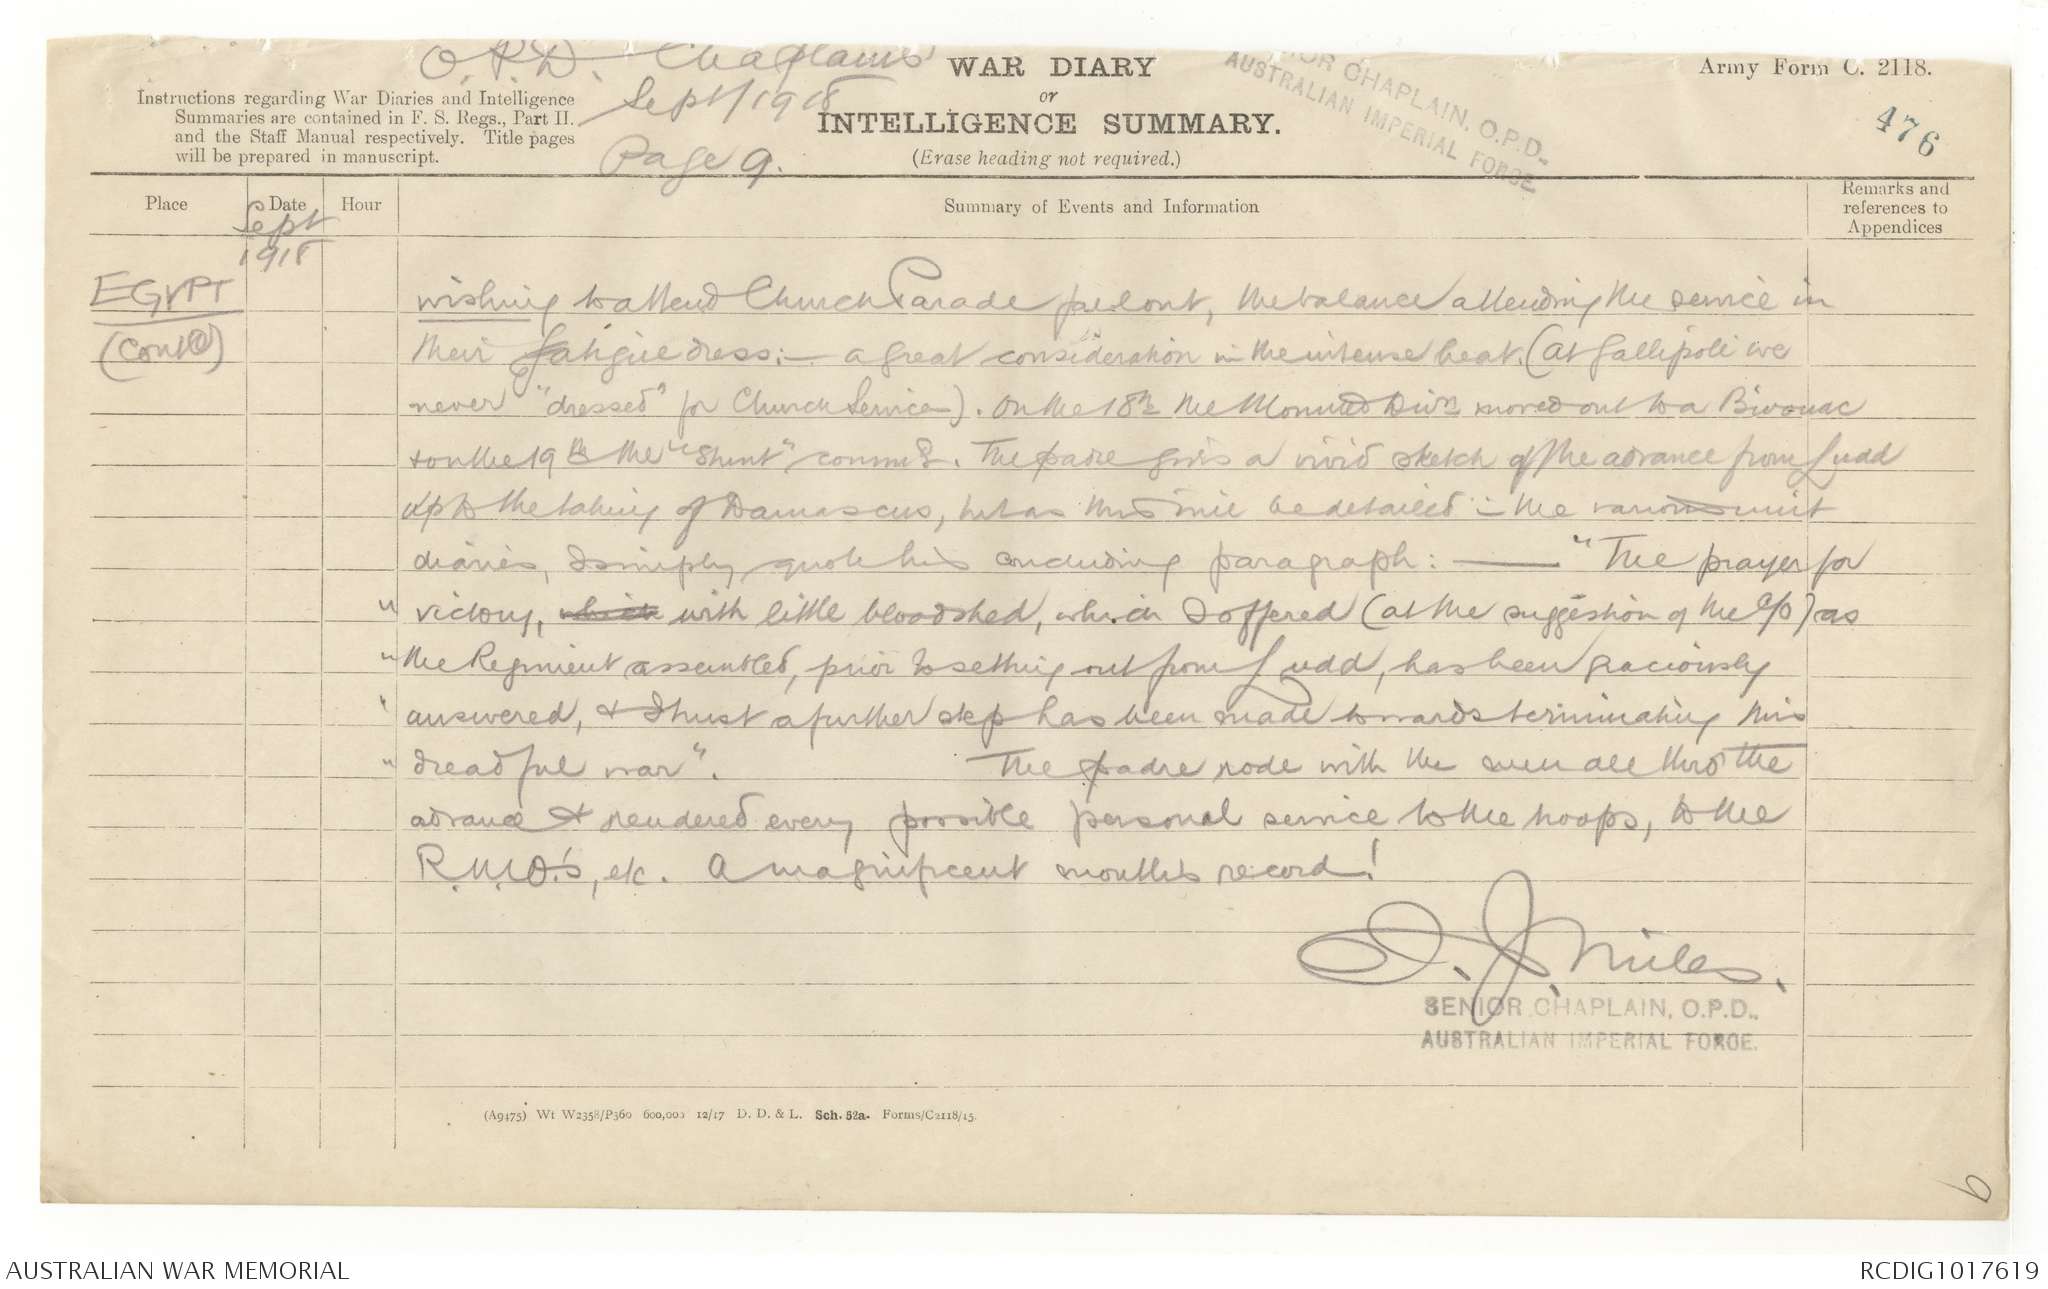 O.P.D. Chaplains'
Sept/1918
Page 9.
WAR DIARY
or
INTELLIGENCE SUMMARY.
(Erase heading not required.)
SENIOR CHAPLAIN, O.P.D.,
AUSTRALIAN IMPERIAL FORCE
Army Form C. 2118.
476
Instructions regarding War Diaries and Intelligence
Summaries are contained in F. S. Regs., Part II.
and the Staff Manual respectively. Title pages
will be prepared in manuscript.
Place
Date
Hour
Summary of Events and Information
Remarks and
references to
Appendices
Sept
1918
EGYPT
(Cont@)
wishing to attend Church Parade fell out, the balance attending the service in
their fatigue dress:— a great consideration in the intense heat. (At Gallipoli we
never "dressed" for Church Services). On the 18th the Mounted Divn moved out to a Bivouac
& on the 19th the "Stunt" commd. The padre gives a vivid sketch of the advance from Ludd
up to the taking of Damascus, but as this will be detailed in the various unit
diaries, I simply quote his concluding paragraph: — "The prayer for
" victory, which with little bloodshed, which I offered (at the suggestion of the C/O) as
" the Regiment assembled, prior to setting out from Ludd, has been graciously
" answered, & I trust a further step has been made towards terminating this
" dreadful war". The padre rode with the men all thro' the
advance & rendered every possible personal service to the troops, to the
R.M.O.'s, etc. A magnificent month's record!
J. Miles.
SENIOR CHAPLAIN, O.P.D.,
AUSTRALIAN IMPERIAL FORCE.
(A9475) Wt W2358/P360 600,000 12/17 D. D. & L. Sch. 52a. Forms/C2118/15.
9
AUSTRALIAN WAR MEMORIAL
RCDIG1017619